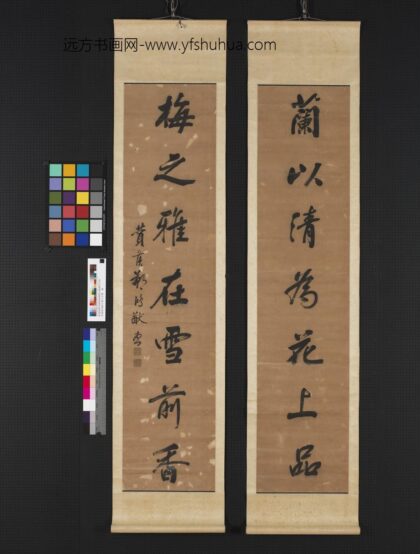 远方书画网-www.yfshuhua.com
蘭以清為花上品
梅之雅在雪前香